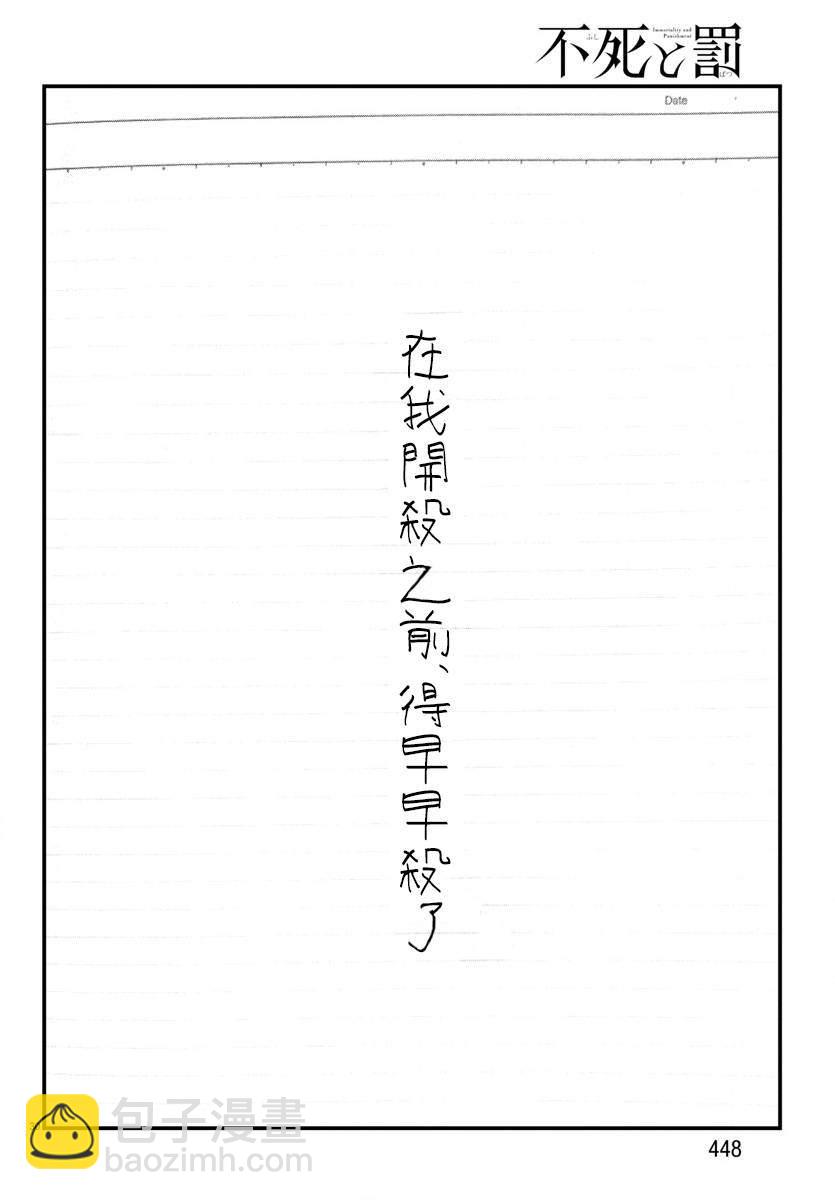 Immortality and
Punishment
不死と罰
ふし
ばつ
Date
在我開殺之前、得早早殺了
包子漫畫
baozimh.com
448